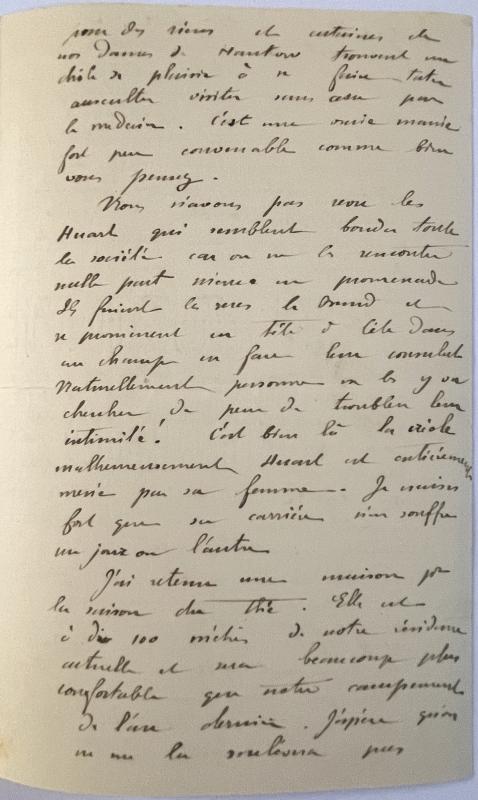 pour des riens et certaines de
nos dames de Hankow trouvent un
drôle de plaisir à se faire tater
ausculter visiter sans cesse par
le médecin. C'est une vraie manie
fort peu convenable comme bien
vous pensez.
Nous n'avons pas revu les
Huart qui semblent bouder toute
la société car on ne les rencontre
nulle part même en promenade
Ils fuient le Bund et
se promènent en tête à tête dans
un champ en face leur consulat
Naturellement personne ne les y va
chercher de peur de troubler leur
intimité! C'est bien là la
malheureusement Huart est entièrement
mené par sa femme. Je crains
fort que sa carrière n'en souffre
un jour ou l'autre
J'ai retenu une maison pr
la saison du thé. Elle est
à dix 100 mètres de notre résidence
actuelle et sera beaucoup plus
confortable que notre campement
de l'an dernier. J'espère qu'on
ne me la soulèvera pas